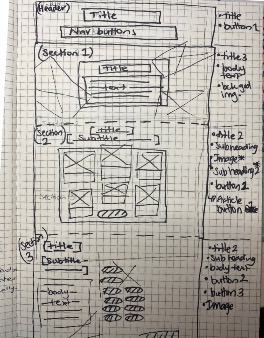 (Header)
Title
Nav buttons
• Title
• button 1
(Section 1)
Title
text
• Title 3
• body text
• bckgrd img.
Section 2
Title
Subtitle
Section
• Title 2
• Subheading
• Image*
• Subheading 2*
• button 2
• Article button
Section 3
Title
Subtitle
body
text
• title 2
• Subheading
• body text
• button 2
• button 3
• Image